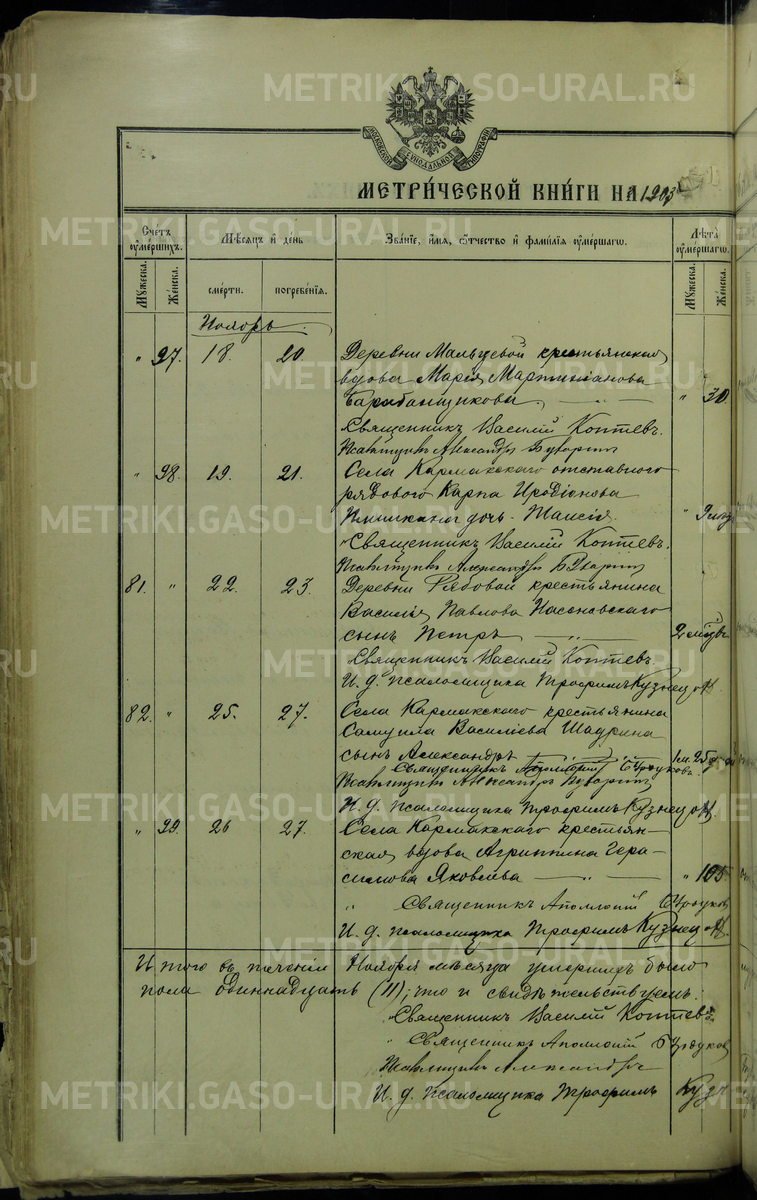 METRIKI.GASO-URAL.RU
МЕТРИ́ЧЕСКОЙ КНИ́ГИ НА 1903
Счетъ ѹме́ршихъ.
Мѣсяцъ и день
Зва́ніе, и́мя, ѻ́тчество и фами́лія ѹме́ршагѡ.
Лѣта ѹме́ршагѡ.
Мꙋжеска. Женска.
сме́рти. погребе́нія.
Мꙋжеска. Женска.
Ноябрь.
" 97. 18. 20 Деревни Мальцевой крестьянская
вдова Марія Мартиніанова
Барабанщикова " 30.
Священникъ Василій Коптевъ.
Псаломщикъ Александръ
" 98. 19. 21. Села Кармакскаго отставного
рядового Карпа Иродіонова
дочь Таисія "
Священникъ Василій Коптевъ.
Псаломщикъ Александръ
81. " 22. 23. Деревни Рябовой крестьянина
Василія Павлова
сынъ Петръ 2
Священникъ Василій Коптевъ.
И. д. псаломщика Трофимъ Кузнецовъ.
82. " 25. 27. Села Кармакскаго крестьянина
Самуила Василіева Шадрина
сынъ Александръ 1 м. 25
Священникъ Аполлоній
Псаломщикъ Александръ
И. д. псаломщика Трофимъ Кузнецовъ.
" 99. 26 27. Села Кармакскаго крестьян-
ская вдова Агриппина Гера-
симова Яковлева " 105.
Священникъ Аполлоній
И. д. псаломщика Трофимъ Кузнецовъ.
Итого въ теченіи Ноября мѣсяца умершихъ было
пола одиннадцать (11); что и свидѣтельствуемъ:
Священникъ Василій Коптевъ.
Священникъ Аполлоній
Псаломщикъ Александръ
И. д. псаломщика Трофимъ Кузн